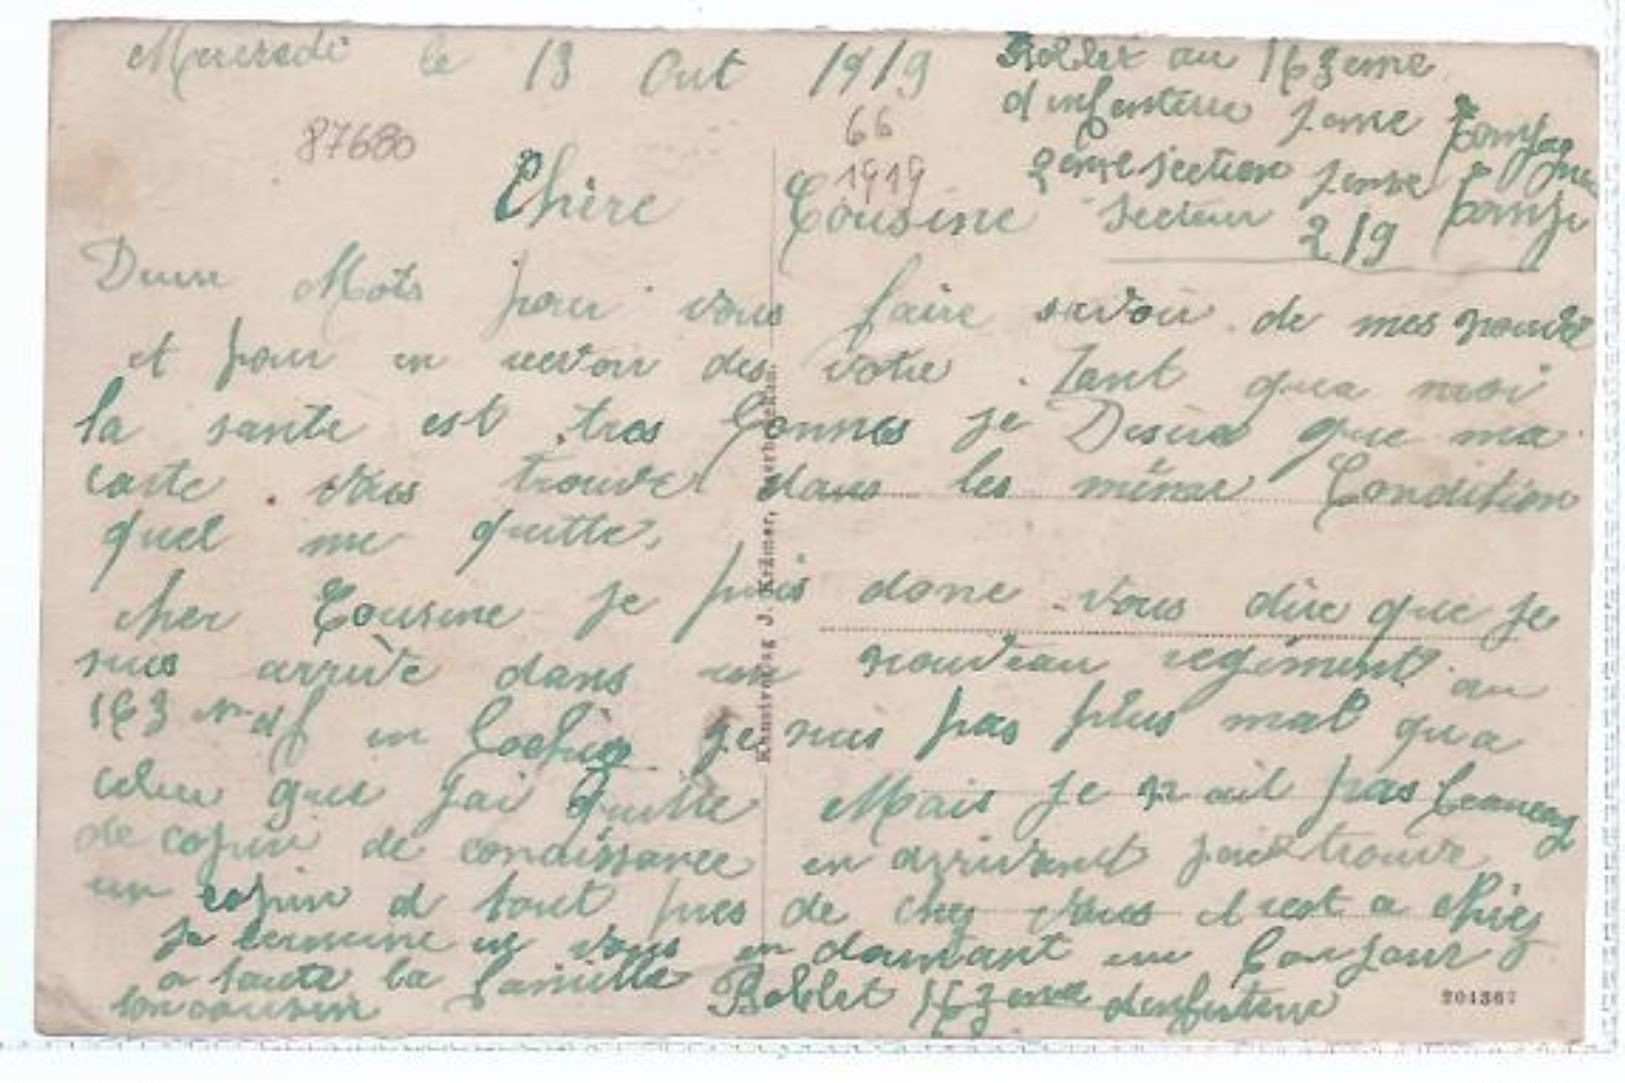 Mercredi le 13 Out 1919
Boblet au 163eme
d'infenterie 7eme Compagnie
2eme section 7eme Compi
Secteur 219
87680
66
1919
Chère Cousine
Deux Mots pour vous faire savoir de mes nouvele
et pour en recevoir des votre. Tant qua moi
la sante est tres bonnes je Desire que ma
carte vous trouve dans les même Condition
quel me quitte.
cher Cousine je puis donc vous dire que je
suis arrivé dans un nouveau regiment au
163 d'if en je suis pas plus mal qua
celui que j'ai quitte Mais je n ait pas beaucoup
de copin de conaissance en arrivant trouve
un copin d tout pres de chez vous il rest a
Je termine en vous en donnant un bonjour
a toute la famille Boblet 163eme d'enfenterie
ton cousin
Kunstverlag J. Krämer,
201367